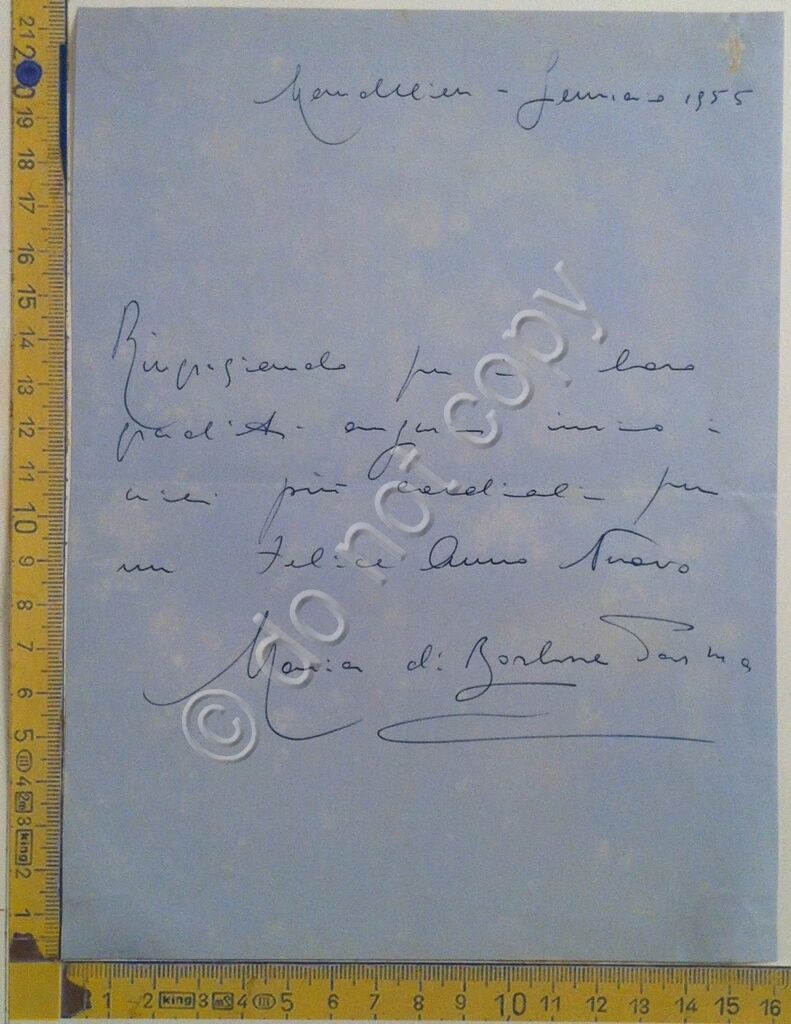 Mandelieu - Gennaio 1955
Ringraziando per i loro
graditi auguri invio i
miei più cordiali per
un Felice Anno Nuovo
Maria di Borbone Parma
© do not copy
21 20 19 18 17 16 15 14 13 12 11 10 9 8 7 6 5 4 2m 3 king 2 1
1 2 king 3 4 5 6 7 8 9 10 11 12 13 14 15 16